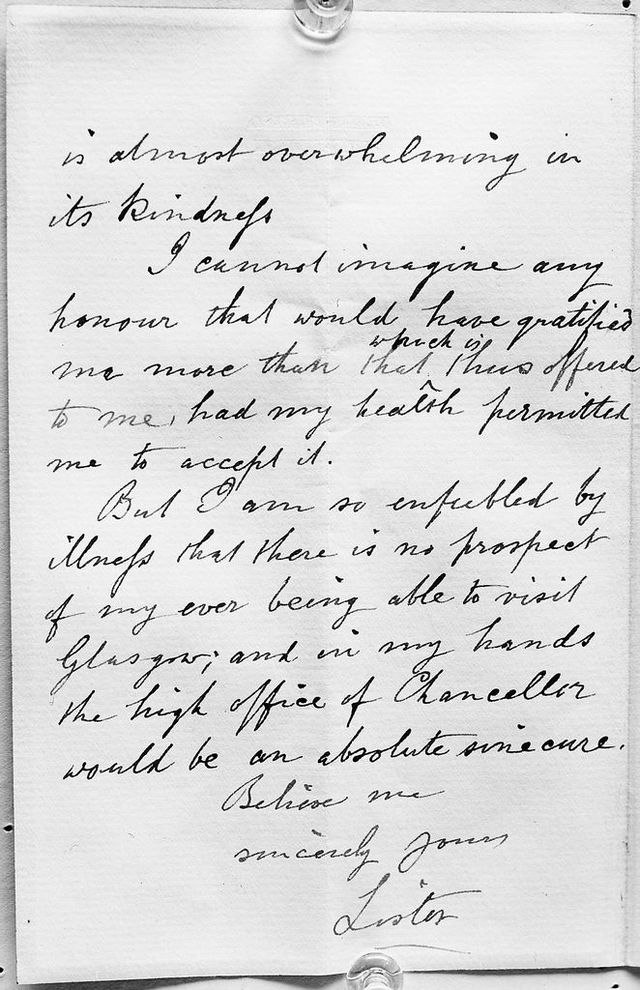 is almost overwhelming in
its kindness
I cannot imagine any
honour that would have gratified
which is
me more than that thus offered
to me, had my health permitted
me to accept it.
But I am so enfeebled by
illness that there is no prospect
of my ever being able to visit
Glasgow; and in my hands
the high office of Chancellor
would be an absolute sinecure.
Believe me
sincerely yours
Lister